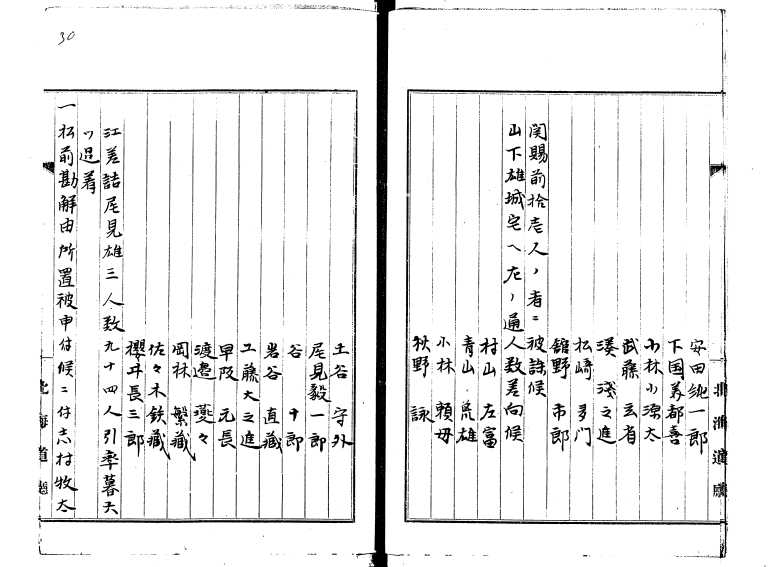 安田純一郎
下国美都喜
小林小源太
武藤玄省
湊浅之進
松崎多門
舘野市郎
関賜前拾壱人ノ者ニ被誅候
山下雄城宅ヘ左ノ通人数差向候
村山左富
青山荒雄
小林頼母
秋野詠
北海道廳
30
土谷守外
尾見毅一郎
谷十郎
岩谷直蔵
工藤大之進
早阪元長
渡邉夔々
岡林繁蔵
佐々木鉄蔵
櫻井長三郎
江差詰尾見雄三人数九十四人引率暮六
ツ過着
一松前勘解由所置被申付候ニ付志村牧太
北海道廳